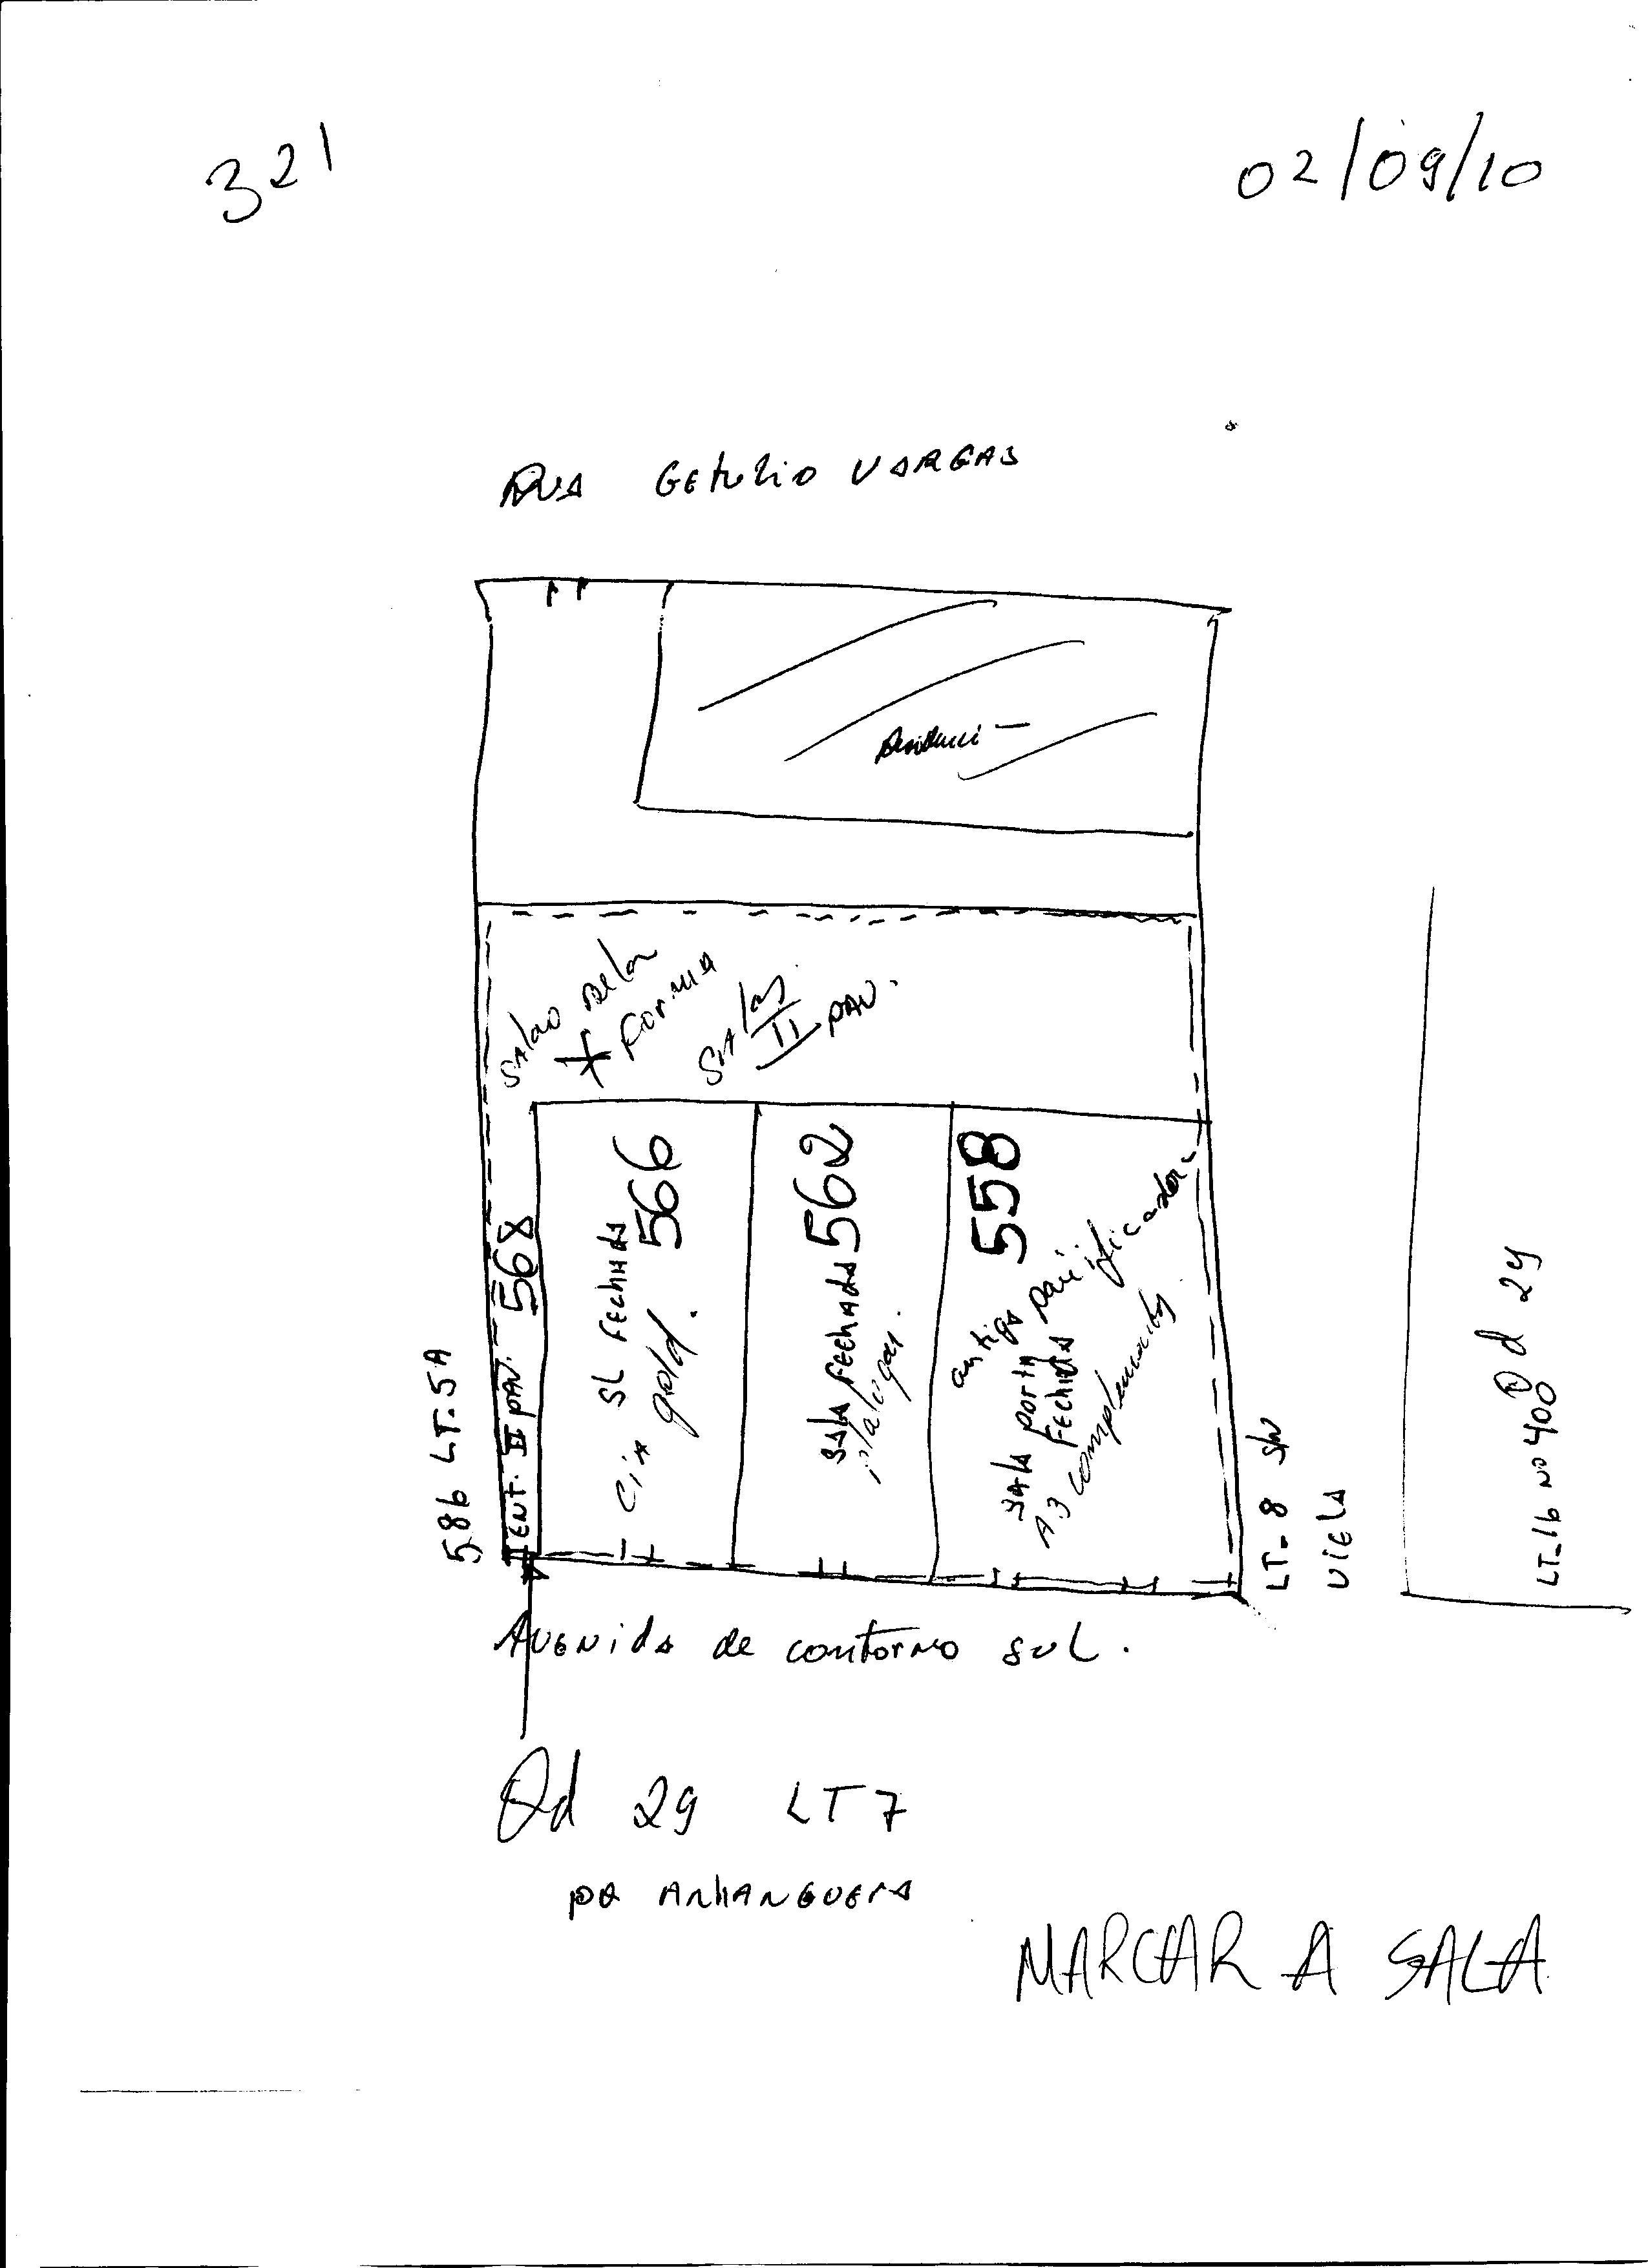 321
02/09/10
RUA GETULIO VARGAS
SALAO BELA
FORMA
SALAS
II PAV.
586 LT. 5A
ENT. II PAV. 568
SL FECHADA 566
CIA gold.
SALA FECHADA 562
p/alugar.
558
antigo panificadora
SALA PORTA
FECHADA
A.3 complementos
LT- 8 S/N
VIELA
LT-16 Nº 400 Qd 29
AVENIDA de contorno SUL.
Qd 29 LT 7
PQ ANHANGUERA
MARCAR A SALA